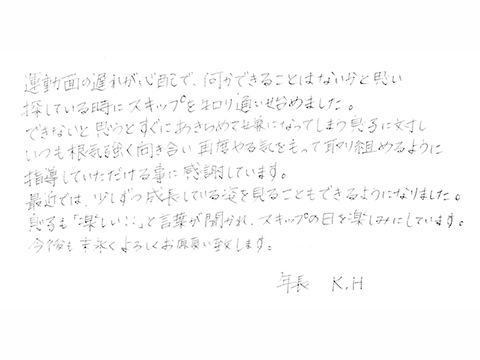 運動面の遅れが心配で、何かできることはないかと思い
探している時にスキップを知り通い始めました。
できないと思うとすぐにあきらめて嫌になってしまう息子に対し
いつも根気強く向き合い再度やる気をもって取り組めるように
指導していただける事に感謝しています。
最近では、少しずつ成長している姿を見ることもできるようになりました。
息子も「楽しい!!」と言葉が聞かれ、スキップの日を楽しみにしています。
今後も末永くよろしくお願い致します。
年長 K.H